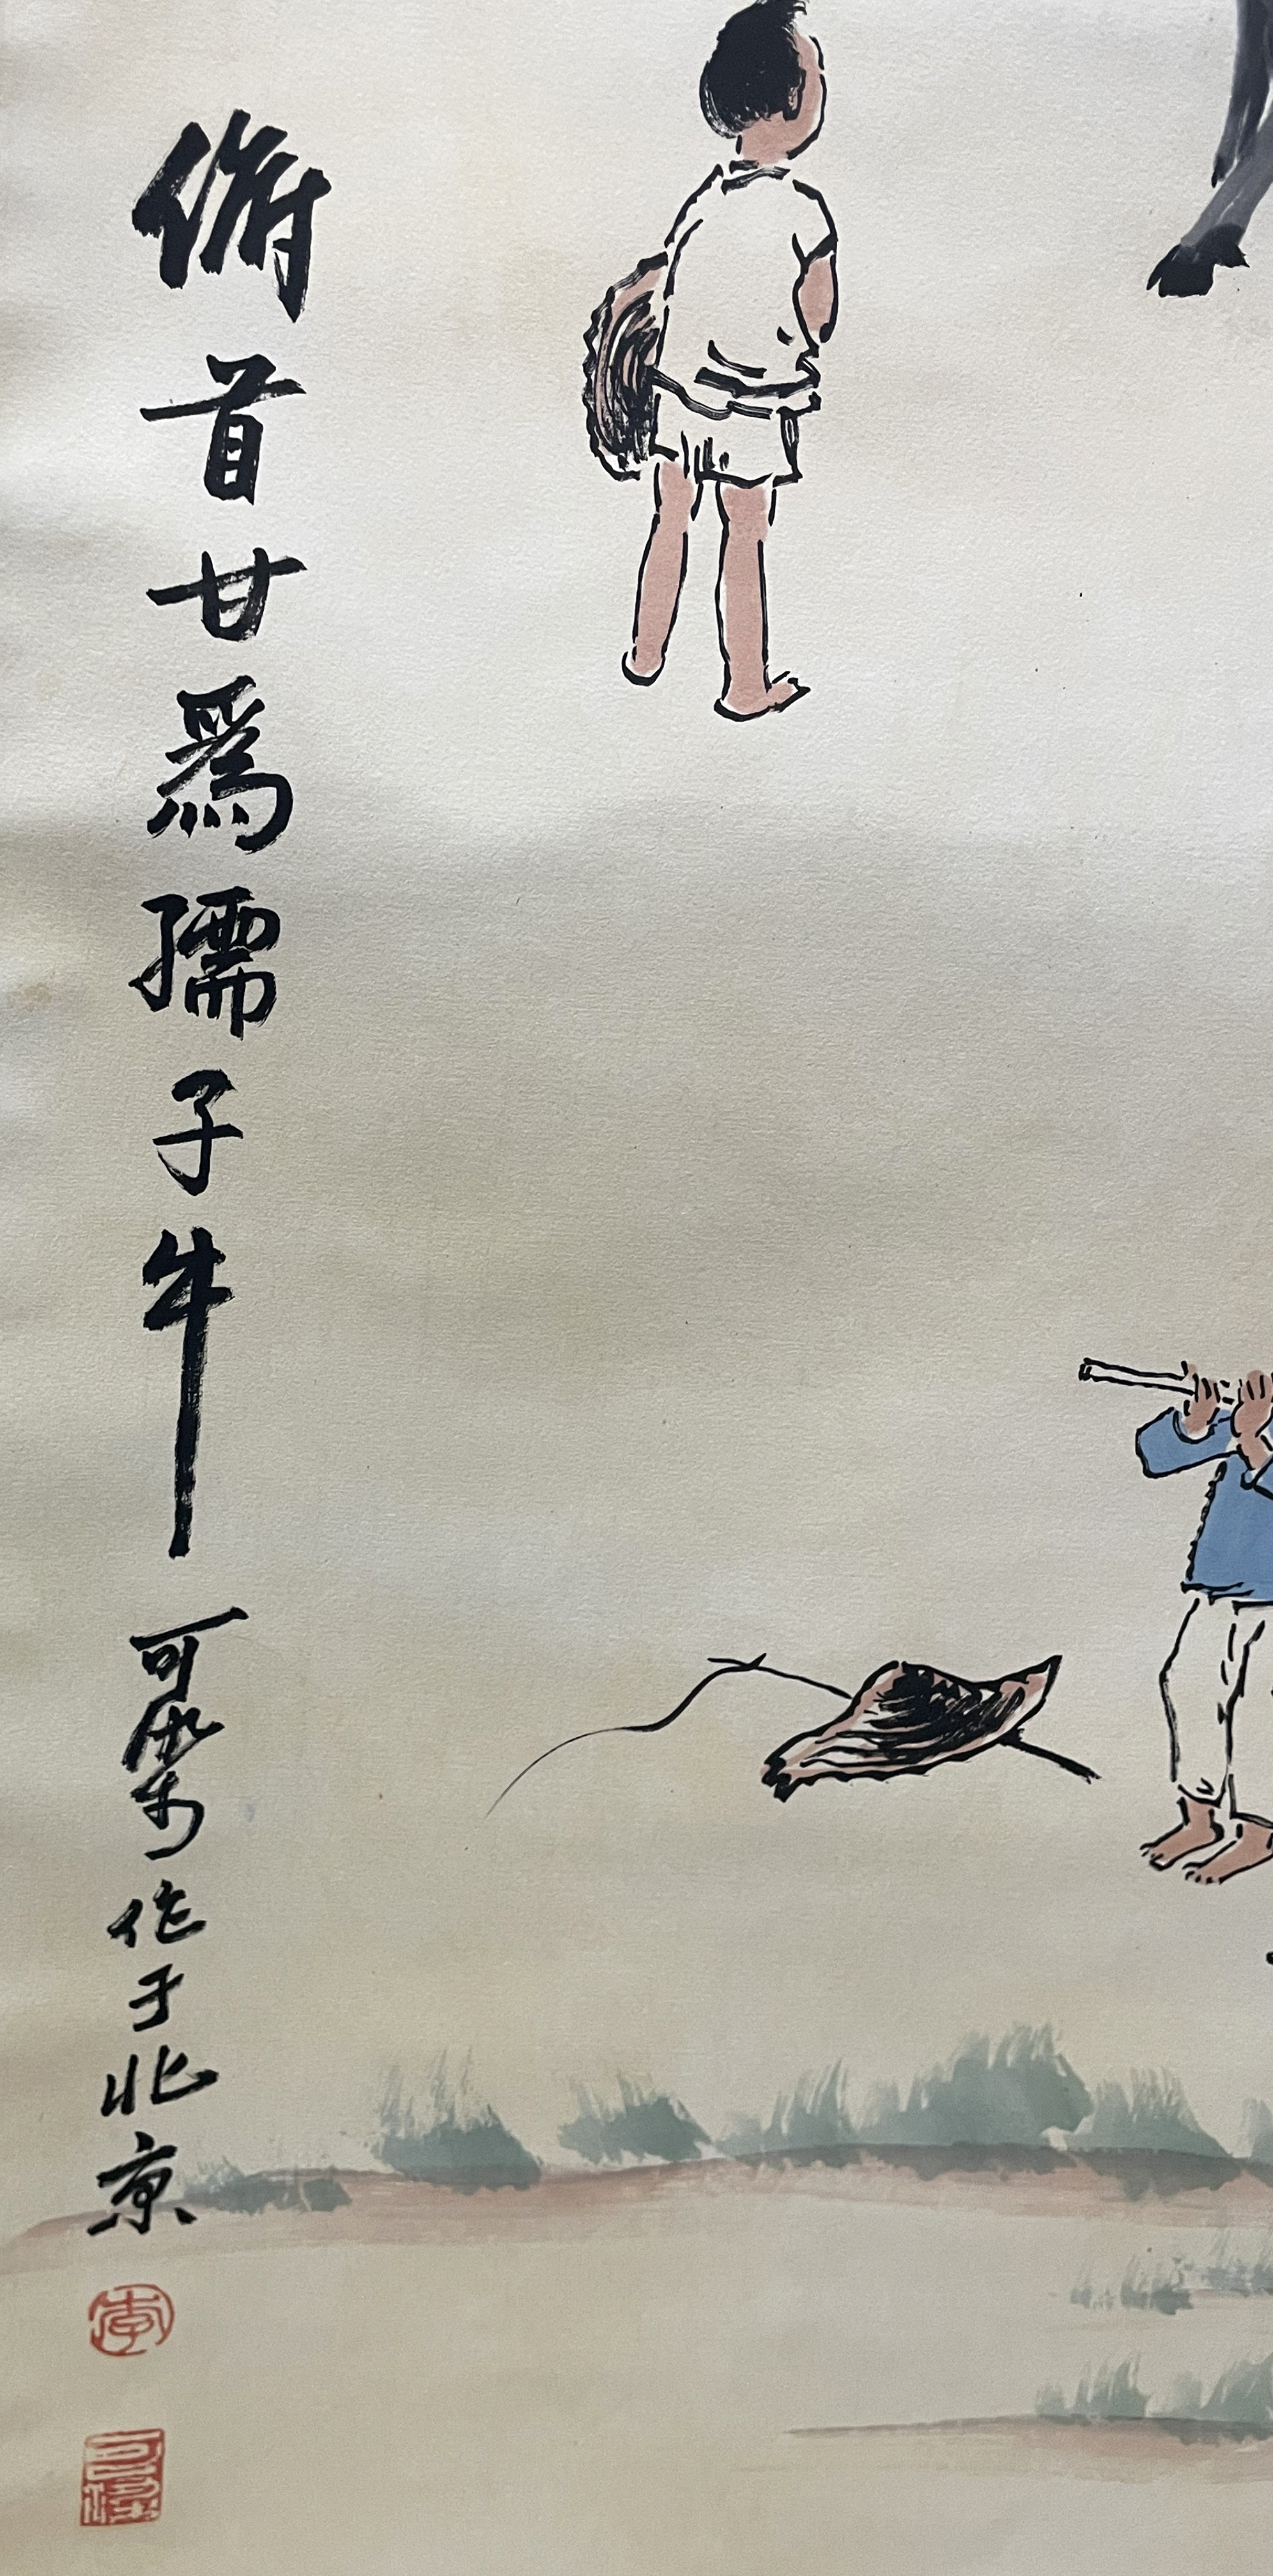 俯首甘爲孺子牛 可染作于北京
李